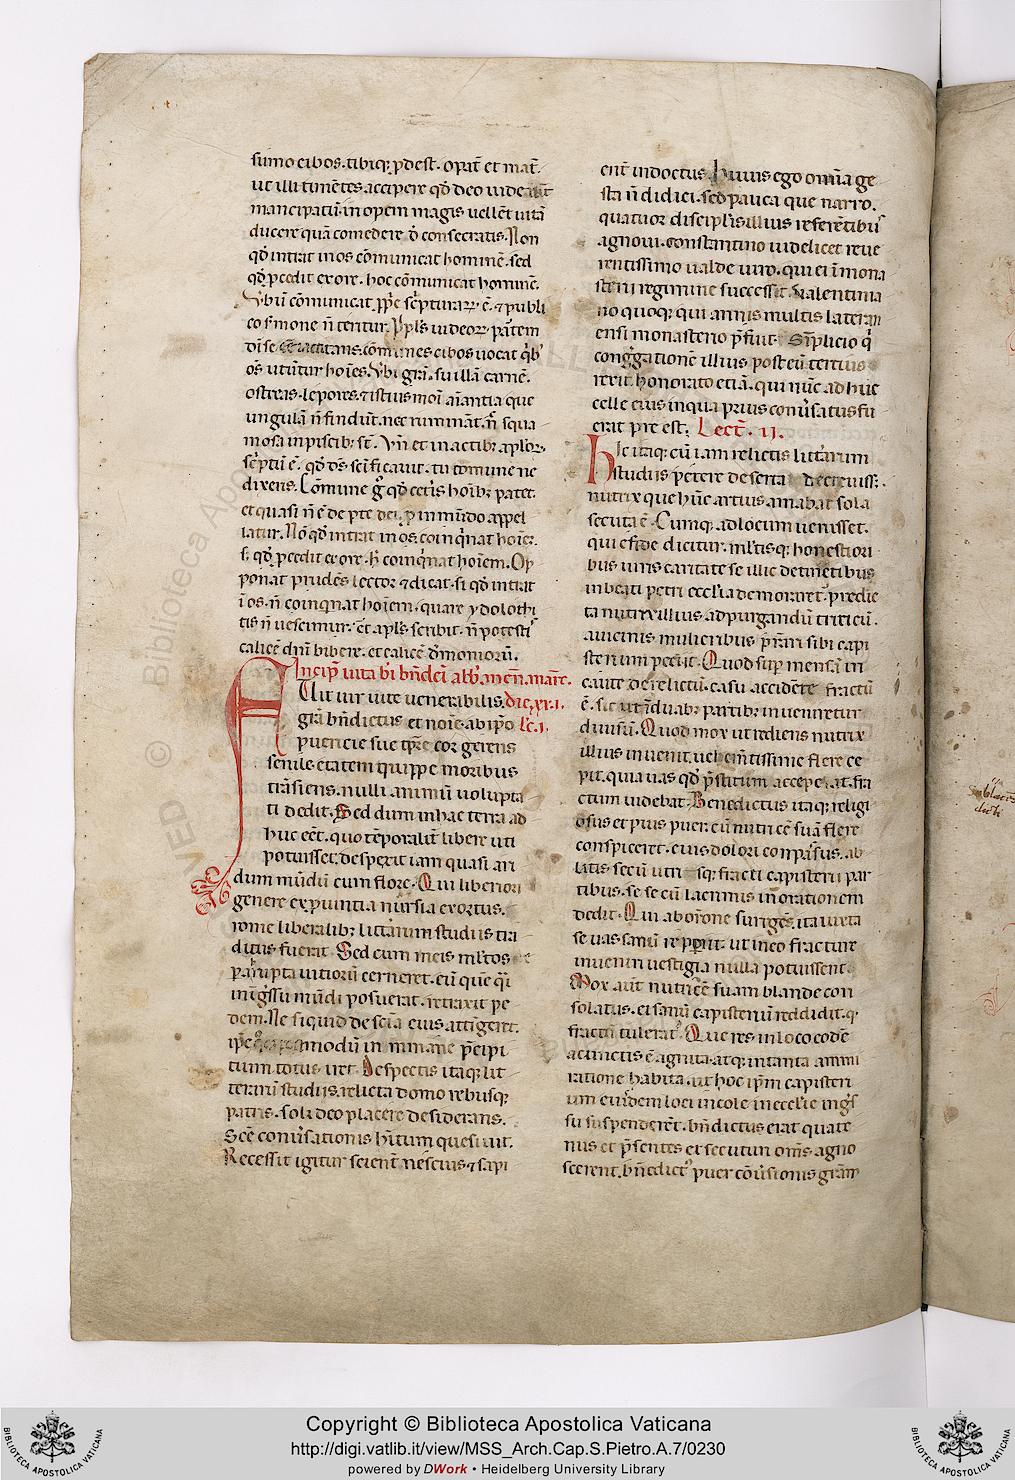 sumo cibos. tibiq; ꝓdest. Orat̄ et mat̄.
ut illi timētes accipere qd̄ deo uideant̄
mancipatū. in opem magis uellēt uitā
ducere quā comedere d̄ consecratis. Non
qd̄ intrat in os cōmunicat hominē. sed
qd̄ ꝓcedit ex ore. hoc cōmunicat hominē.
cōmunicat
eo s̄mone n̄ teritur.
cōmunes cibos uocat
os utūtur hoīes.
ostreas. lepores. ⁊ istius moī aīantia que
ungulā n̄ findūt. nec rumināt. n̄ squa
mosa in piscibꝫ st̄. Vn̄ et in actibꝫ apl̄oꝝ
sc̄ptū ē. qd̄ ds̄ sc̄ificauit. tu cōmune ne
dixeris. Cōmune g̊ qd̄ cet̄is hoībꝫ patet.
et quasi n̄ ē de ꝑte dei. ꝓ inmūdo appel
latur. Nō qd̄ intrat in os. coinq̄nat hoīem.
s; qd̄ ꝓcedit ex ore. h̄ coinq̄nat hoīem. Op
ponat prudēs lector ⁊ dicat. si qd̄ intrat
ī os. n̄ coinq̄nat hoīem. quare ydolothi
tis n̄ uescimur. Et apl̄s scribit. n̄ potestis
calicē dn̄i bibere. et calicē d̄moniorū.
Incip̄ uita bī bn̄dc̄i abb̄. in ēn. mart̄.
Fuit uir uite uenerabilis. die. xxi.
grā bn̄dictus et noīe. ab ip̄o lc̄. i.
puericie sue tp̄re cor gerens
senile. etatem quippe moribus
trāsiens. nulli animū uolupta
ti dedit. Sed dum in hac terra ad
huc eēt. quo tēporalit̄ libere uti
potuisset. despexit iam quasi ari
dum mūdū cum flore. Qui liberiori
genere ex ꝓuintia nursia exortus.
rome liberalibꝫ litt̄arum studiis tra
ditus fuerat. Sed cum in eis ml̄tos
ꝑ arrupta uitiorū cerneret. eū quē q̄si
in inḡssu mūdi posuerat. retraxit pe
dem. Ne si quid de sciā eius attigeret.
ip̄e modū in inmane p̄cipi
tium totus iret. Despectis itaq; lit
terarū studiis. relicta domo rebusq;
patris. soli deo placere desiderans.
Sc̄e conūsationis hītum quesiuit.
Recessit igitur scient̄ nescius ⁊ sapi
ent̄ indoctus. Huius ego om̄ia ge
sta n̄ didici. sed pauca que narro.
quatuor discipl̄is illius referētibus
agnoui. constantino uidelicet reue
rentissimo ualde uiro. qui ei ī mona
sterii regimine successit. Valentinia
no quoq; qui annis multis lateran
ensi monasterio p̄fuit. Sīplicio q̄
cong̊gationē illius post eū tertius
rexit. honorato etiā. qui nūc ad huc
celle eius in qua prius conūsatus fu
erat pre est; Lect̄. ii.
Hic itaq; cū iam relictis litt̄arum
studiis petere deserta decreuiss;.
nutrix que hūc artius amabat sola
secuta ē. Cumq; ad locum uenisset.
qui efide dicitur. ml̄tisq; honestiori
bus uiris caritate se illic detinētibus
in beati petri ecclīa demoraret̄. predic
ta nutrix illius. ad purgandū triticū.
a uicinis mulieribus p̄stari sibi capi
sterium peciit. Quod sup̄ mensā in
caute derelictū. casu accidēte fractū
ē. sic ut ī duabꝫ partibꝫ inueniretur
diuisū. Quod mox ut rediens nutrix
illius inuenit. uehem̄tissime flere ce
pit. quia uas qd̄ p̄stitum acceperat. fra
ctum uidebat. Benedictus itaq; religi
osus et pius puer. cū nutricē suā flere
conspiceret. eius dolori conpassus. ab
latis secū utrisq; fracti capisterii par
tibus. se se cū lacrimis in orationem
dedit. Qui ab orōne surgēs. ita iuxta
se uas sanū repperit. ut in eo fracture
inueniri uestigia nulla potuissent.
Mox aūt nutricē suam blande con
solatus. ei sanū capisteriū reddidit. q;
fractū tulerat. Que res in loco eodē
a cunctis ē agnita. atq; in tanta ammi
ratione habita. ut hoc ip̄m capisteri
um eiusdem loci incole in ecclīe ingr̄s
su suspenderēt. bn̄dictus erat quate
nus et p̄sentes et secuturi om̄s agno
scerent. bn̄edict᾿ puer cōūsionis grām
Copyright © Biblioteca Apostolica Vaticana
http://digi.vatlib.it/view/MSS_Arch.Cap.S.Pietro.A.7/0230
powered by DWork • Heidelberg University Library
BIBLIOTECA APOSTOLICA VATICANA
BIBLIOTECA APOSTOLICA VATICANA